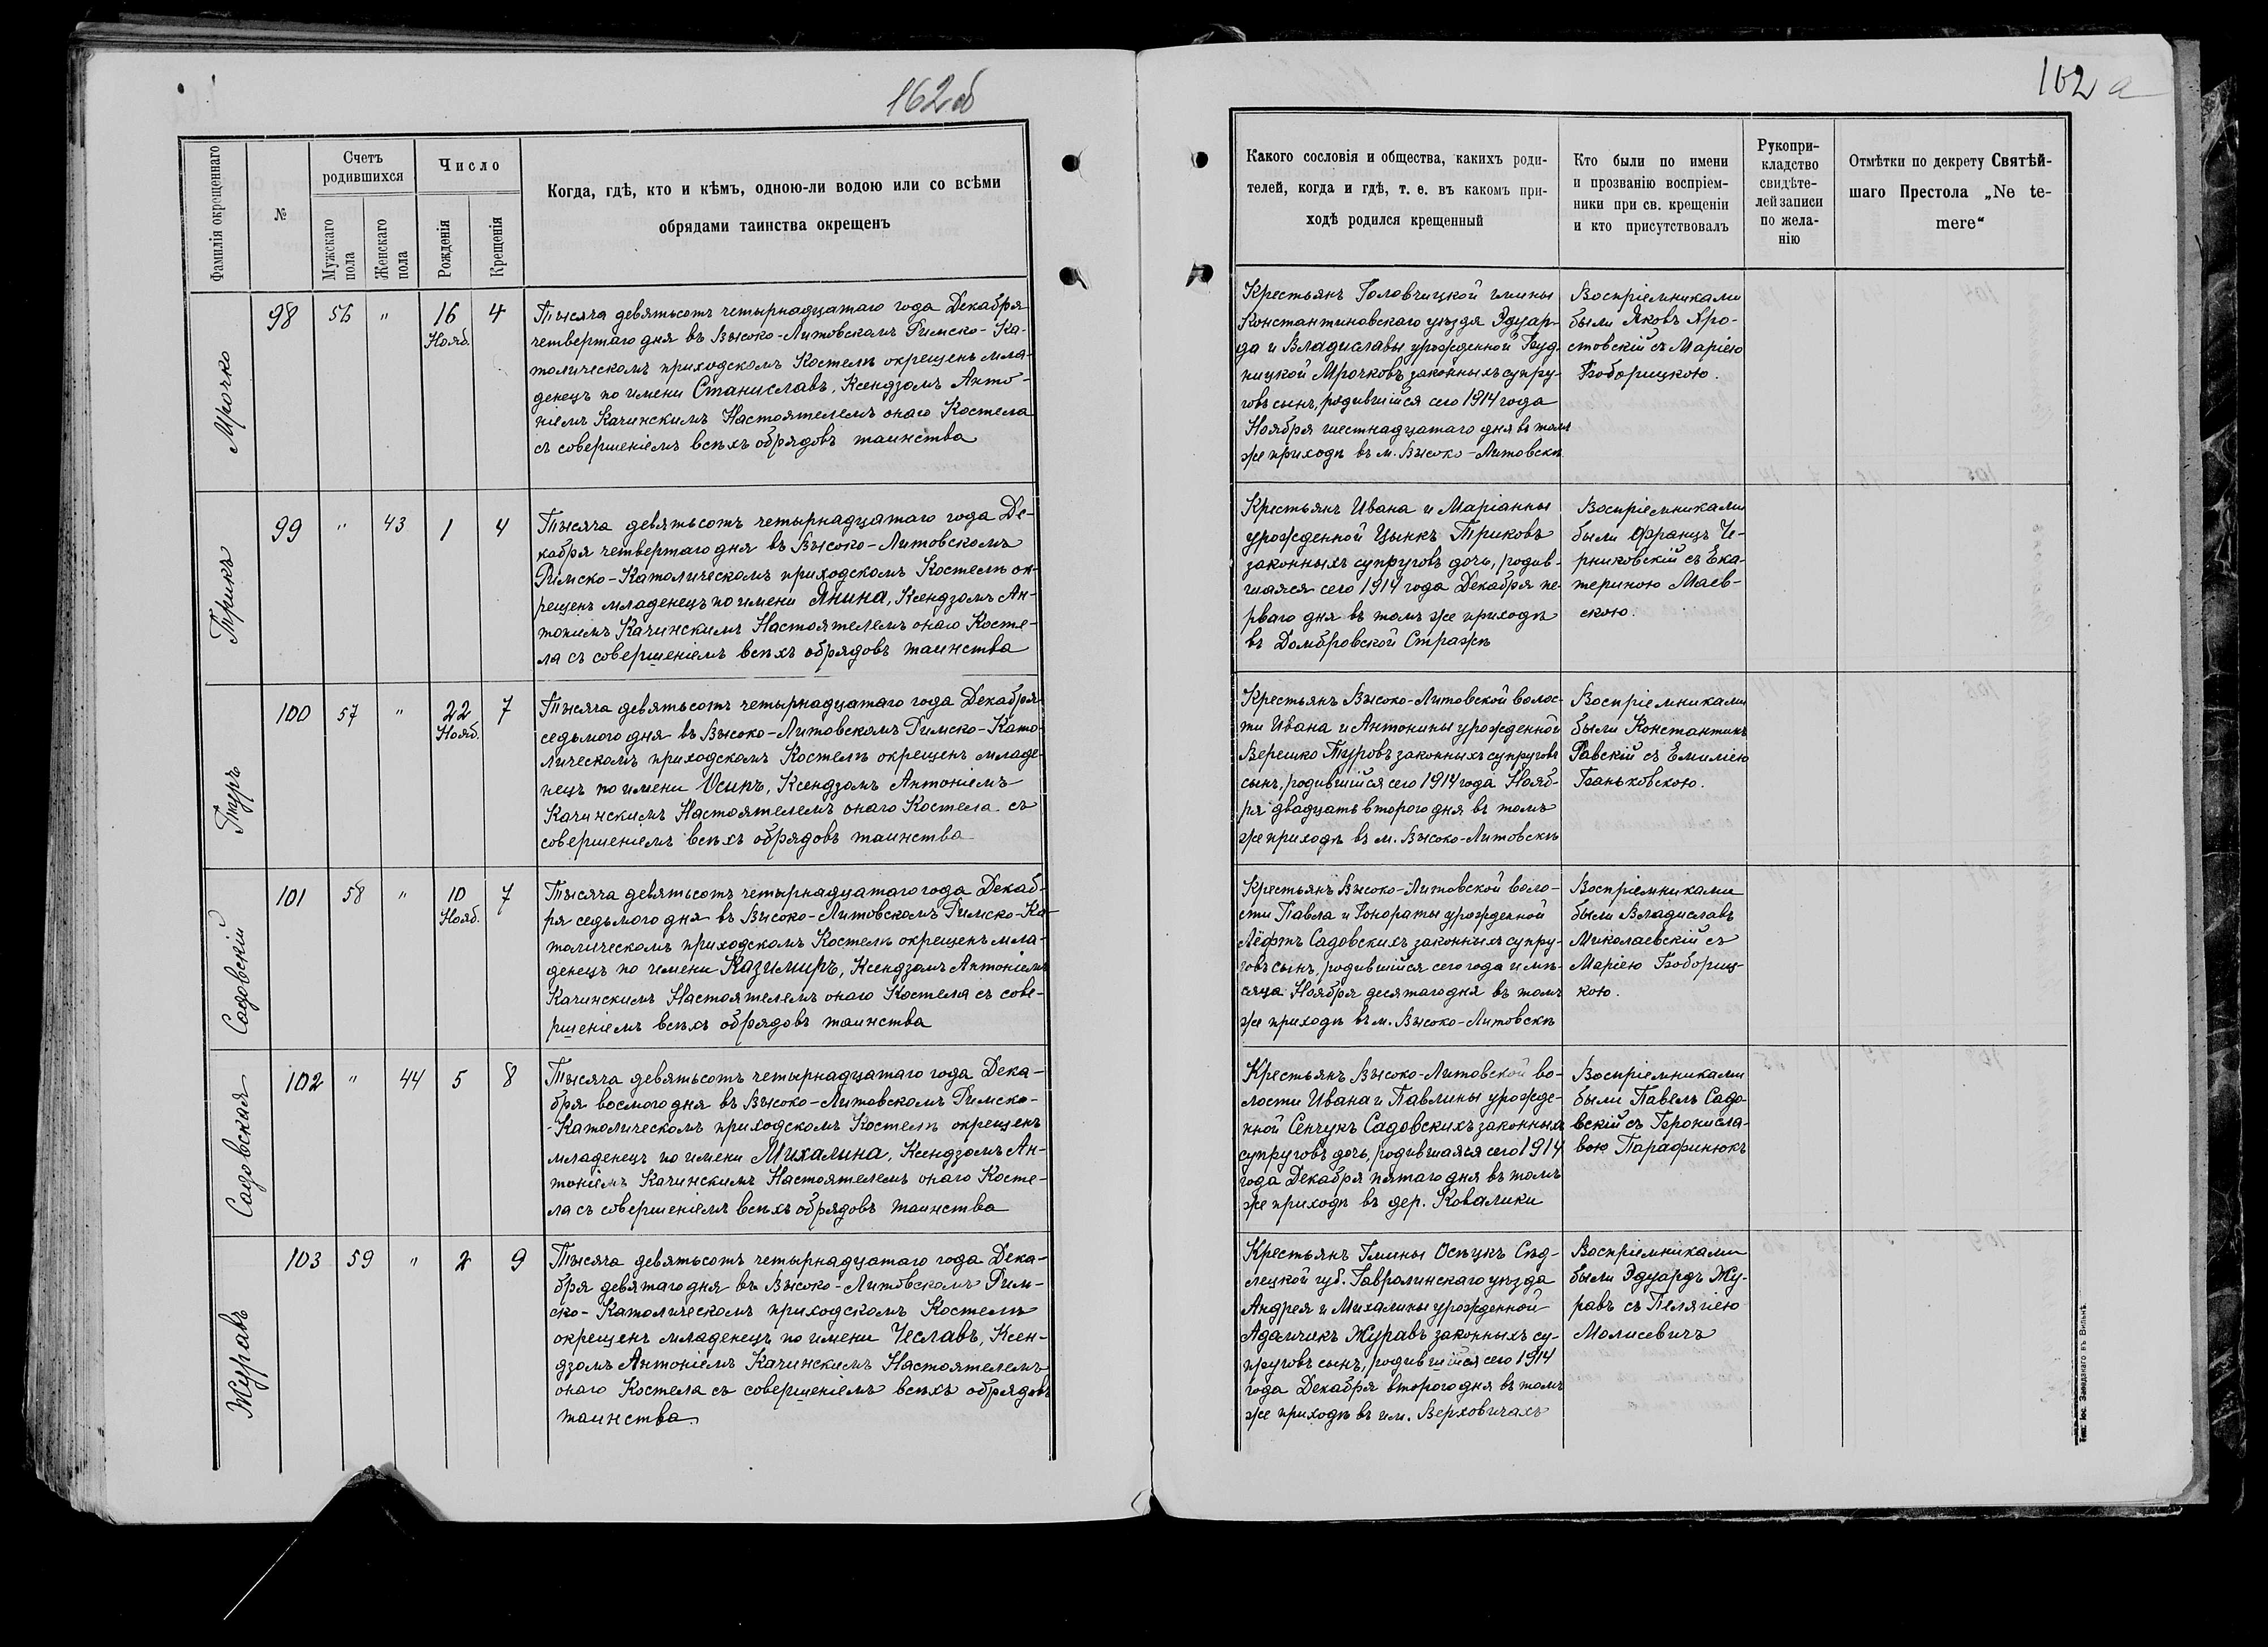 162 об
Фамилія окрещеннаго
№
Счетъ
родившихся
Мужскаго
пола
Женскаго
пола
Число
Рожденія
Крещенія
Когда, гдѣ, кто и кѣмъ, одною-ли водою или со всѣми
обрядами таинства окрещенъ
Мрочко
98
56
"
16
Нояб.
4
Тысяча девятьсотъ четырнадцатаго года Декабря
четвертаго дня въ Высоко-Литовскомъ Римско-Ка-
толическомъ приходскомъ Костелѣ окрещенъ мла-
денецъ по имени Станиславъ, Ксендзомъ Анто-
ніемъ Качинскимъ Настоятелемъ онаго Костела
съ совершеніемъ всѣхъ обрядовъ таинства
Трикъ
99
"
43
1
4
Тысяча девятьсотъ четырнадцатаго года Де-
кабря четвертаго дня въ Высоко-Литовскомъ
Римско-Католическомъ приходскомъ Костелѣ ок-
рещенъ младенецъ по имени Янина, Ксендзомъ Ан-
тоніемъ Качинскимъ Настоятелемъ онаго Косте-
ла съ совершеніемъ всѣхъ обрядовъ таинства
Туръ
100
57
"
22
Нояб.
7
Тысяча девятьсотъ четырнадцатаго года Декабря
седьмого дня въ Высоко-Литовскомъ Римско-Като-
лическомъ приходскомъ Костелѣ окрещенъ младе-
нецъ по имени Осипъ, Ксендзомъ Антоніемъ
Качинскимъ Настоятелемъ онаго Костела съ
совершеніемъ всѣхъ обрядовъ таинства
Садовскій
101
58
"
10
Нояб.
7
Тысяча девятьсотъ четырнадцатаго года Декаб-
ря седьмого дня въ Высоко-Литовскомъ Римско-Ка-
толическомъ приходскомъ Костелѣ окрещенъ мла-
денецъ по имени Казимиръ, Ксендзомъ Антоніемъ
Качинскимъ Настоятелемъ онаго Костела съ сове-
ршеніемъ всѣхъ обрядовъ таинства
Садовская
102
"
44
5
8
Тысяча девятьсотъ четырнадцатаго года Дека-
бря восмого дня въ Высоко-Литовскомъ Римско-
-Католическомъ приходскомъ Костелѣ окрещенъ
младенецъ по имени Михалина, Ксендзомъ Ан-
тоніемъ Качинскимъ Настоятелемъ онаго Косте-
ла съ совершеніемъ всѣхъ обрядовъ таинства
Журавъ
103
59
"
2
9
Тысяча девятьсотъ четырнадцатаго года Дека-
бря девятаго дня въ Высоко-Литовскомъ Рим-
ско-Католическомъ приходскомъ Костелѣ
окрещенъ младенецъ по имени Чеславъ, Ксен-
дзомъ Антоніемъ Качинскимъ Настоятелемъ
онаго Костела съ совершеніемъ всѣхъ обрядовъ
таинства
162 а
Какого сословія и общества, какихъ роди-
телей, когда и гдѣ, т. е. въ какомъ при-
ходѣ родился крещенный
Кто были по имени
и прозванію воспріем-
ники при св. крещеніи
и кто присутствовалъ
Рукопри-
кладство
свидѣте-
лей записи
по жела-
нію
Отмѣтки по декрету Святѣй-
шаго Престола „Ne te-
mere“
Крестьянъ Головчицкой гмины
Константиновскаго уѣзда Эдуар-
да и Владиславы урожденной Буд-
ницкой Мрочковъ законныхъ супру-
говъ сынъ, родившійся сего 1914 года
Ноября шестнадцатаго дня въ томъ
же приходѣ въ м. Высоко-Литовскѣ
Воспріемниками
были Яковъ Яро-
стовскій съ Маріею
Боборицкою.
Крестьянъ Ивана и Маріанны
урожденной Цынкъ Триковъ
законныхъ супруговъ дочь, родив-
шаяся сего 1914 года Декабря пе-
рваго дня въ томъ же приходѣ
въ Домбровской Стражѣ
Воспріемниками
были Францъ Че-
рниковскій съ Ека-
териною Маев-
скою.
Крестьянъ Высоко-Литовской волос-
ти Ивана и Антонины урожденной
Верешко Туровъ законныхъ супруговъ
сынъ, родившійся сего 1914 года Нояб-
ря двадцать второго дня въ томъ
же приходѣ въ м. Высоко-Литовскѣ
Воспріемниками
были Константинъ
Равскій съ Емиліею
Баньковскою.
Крестьянъ Высоко-Литовской воло-
сти Павла и Гонораты урожденной
Лёфтъ Садовскихъ законныхъ супру-
говъ сынъ, родившійся сего года и мѣ-
сяца Ноября десятаго дня въ томъ
же приходѣ въ м. Высоко-Литовскѣ
Воспріемниками
были Владиславъ
Миколаевскій съ
Маріею Бобориц-
кою.
Крестьянъ Высоко-Литовской во-
лости Ивана и Павлины урожде-
нной Сенчукъ Садовскихъ законныхъ
супруговъ дочь, родившаяся сего 1914
года Декабря пятаго дня въ томъ
же приходѣ въ дер. Ковалики
Воспріемниками
были Павелъ Садо-
вскій съ Брониcла-
вою Парафинюкъ
Крестьянъ Гмины Осѣцкъ Сѣд-
лецкой губ. Гавралинскаго уѣзда
Андрея и Михалины урожденной
Адамчикъ Журавъ законныхъ су-
пруговъ сынъ, родившійся сего 1914
года Декабря второго дня въ томъ
же приходѣ въ им. Верховичахъ
Воспріемниками
были Эдуардъ Жу-
равъ съ Пелягіею
Малисевичъ
Тип. Іос. Завадзкаго въ Вильнѣ.